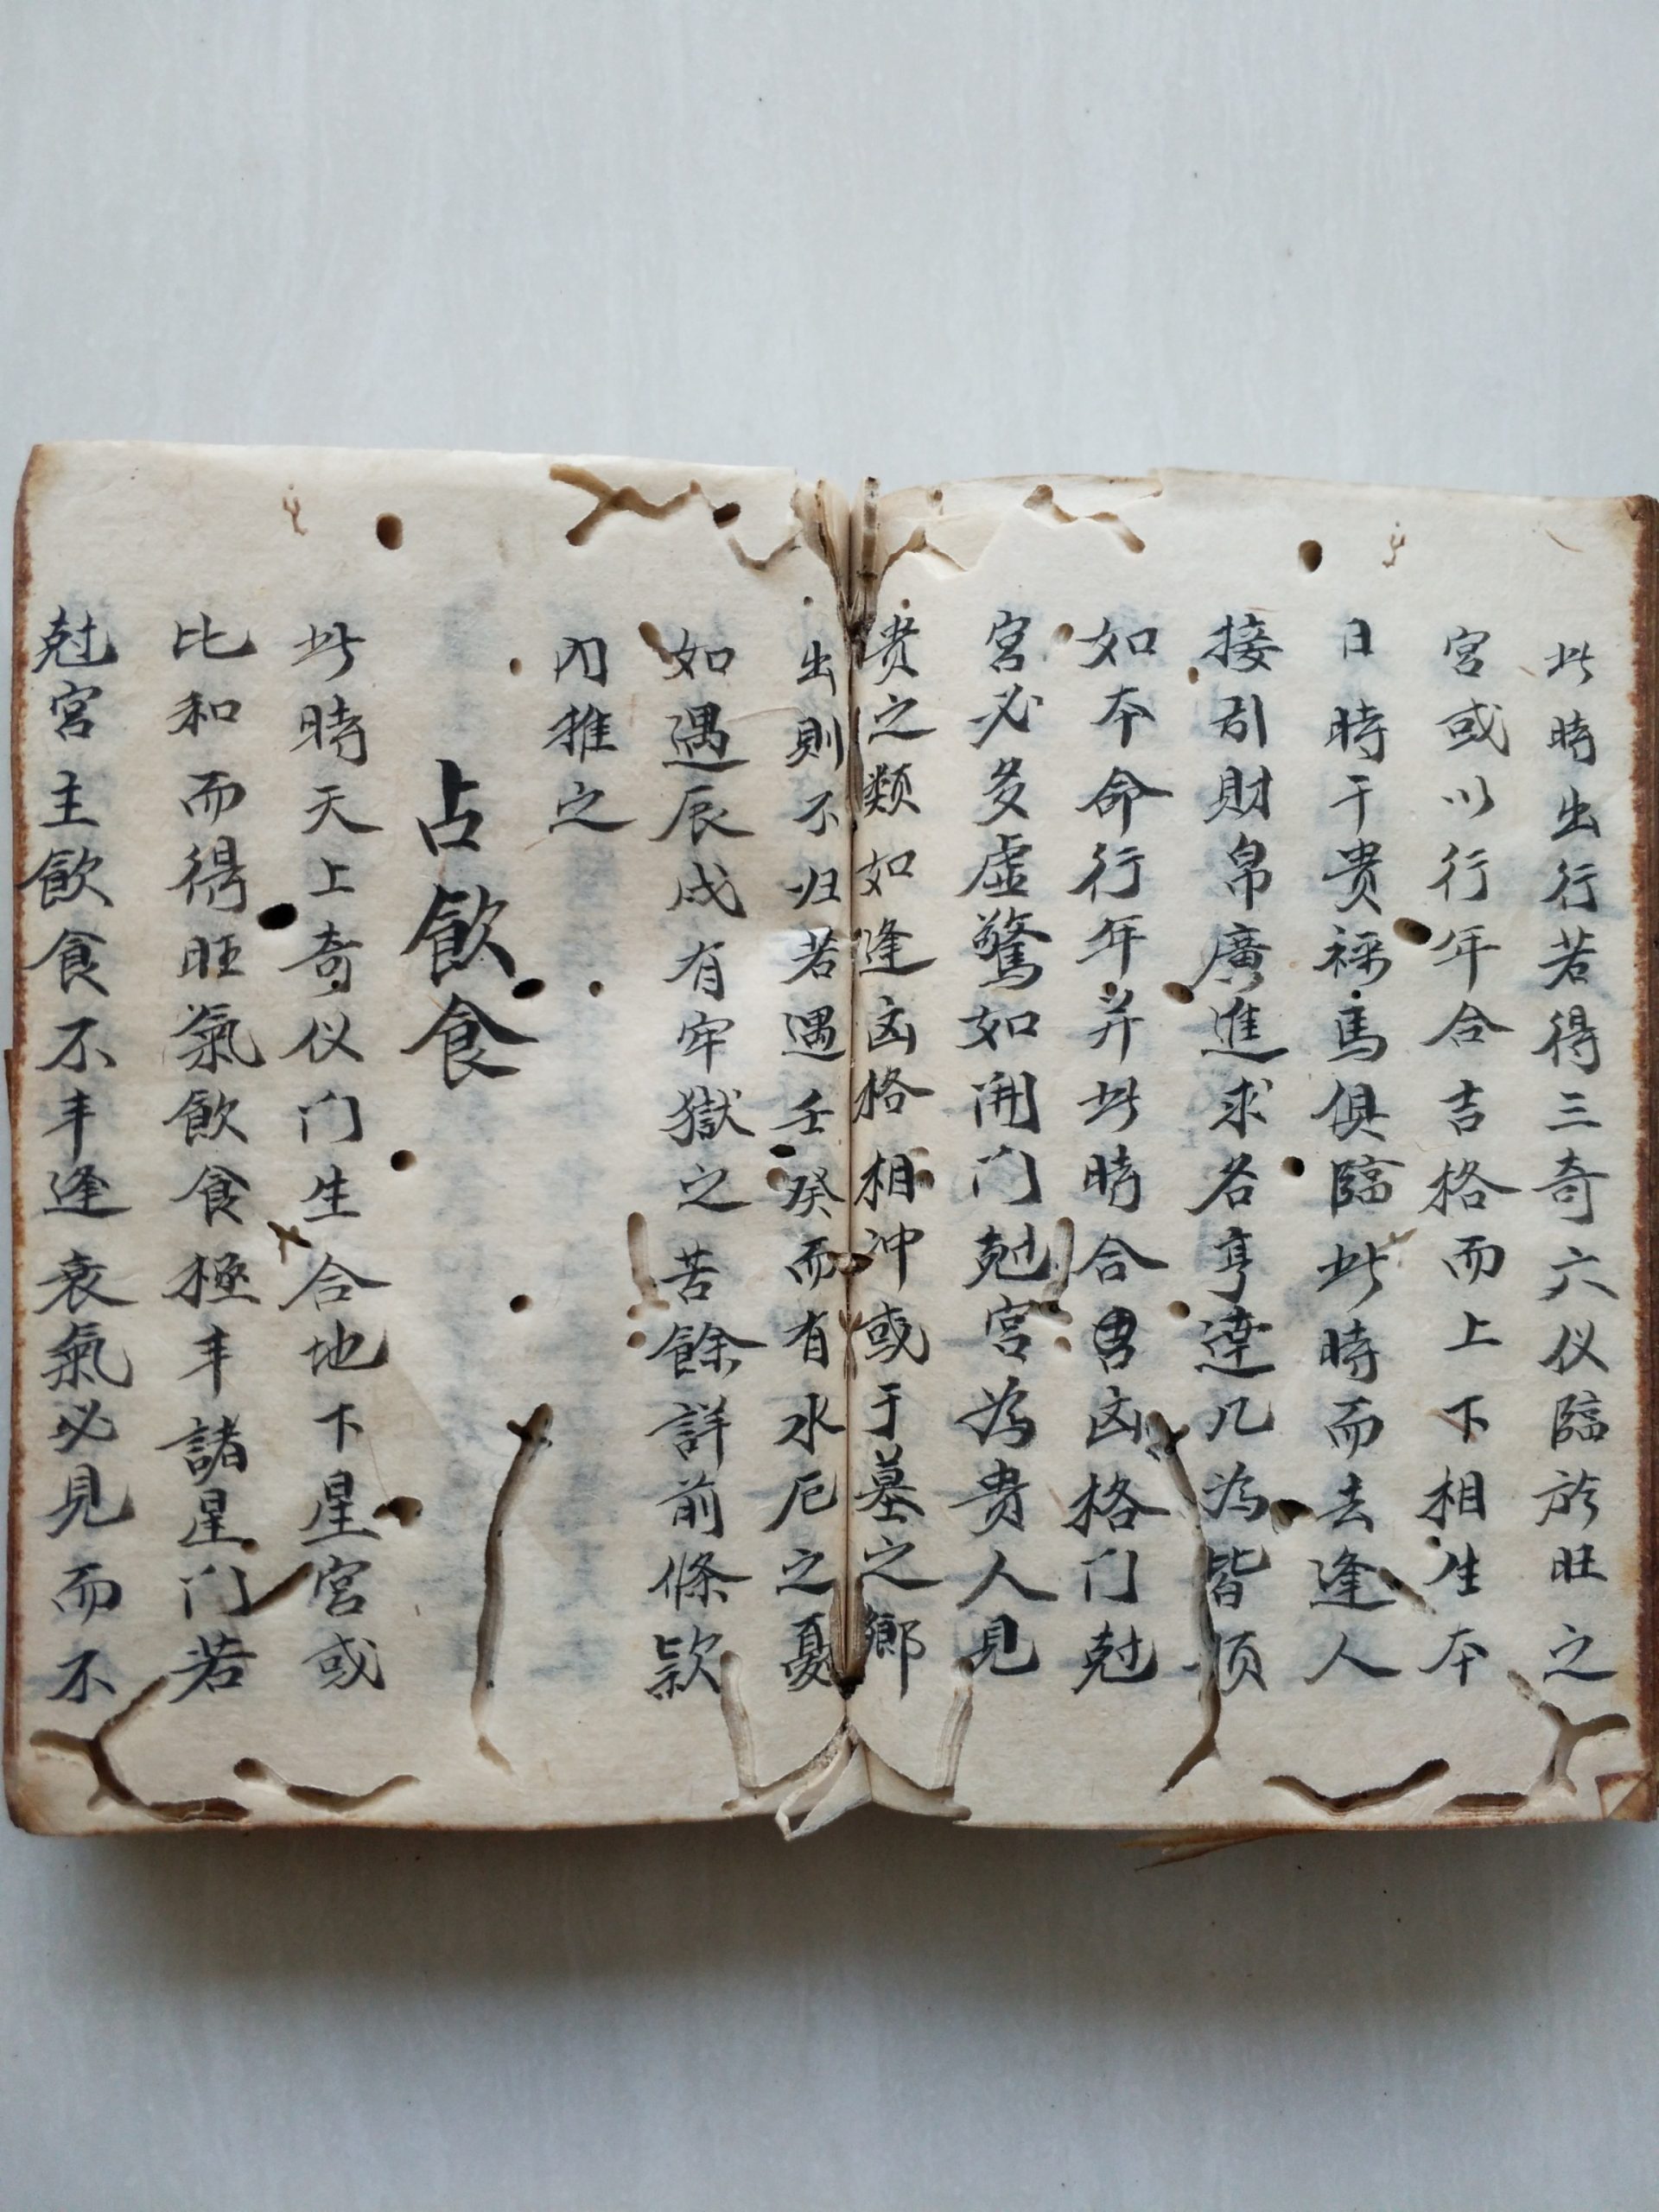 此時出行若得三奇六仪臨於旺之
宮或以行年合吉格而上下相生本
日時干贵祿馬俱臨此時而去逢人
接引財帛廣進求名亨達凡為皆順
如本命行年并此時合凶格门尅
宮必多虛驚如開门尅宮為贵人見
贵之類如逢凶格相冲或于墓之鄉
出則不归若遇壬癸而有水厄之憂
如遇辰戌有牢獄之苦餘詳前條款
内推之
占飲食
此時天上奇仪门生合地下星宮或
比和而得旺氣飲食極丰諸星门若
尅宮主飲食不丰逢衰氣必見而不